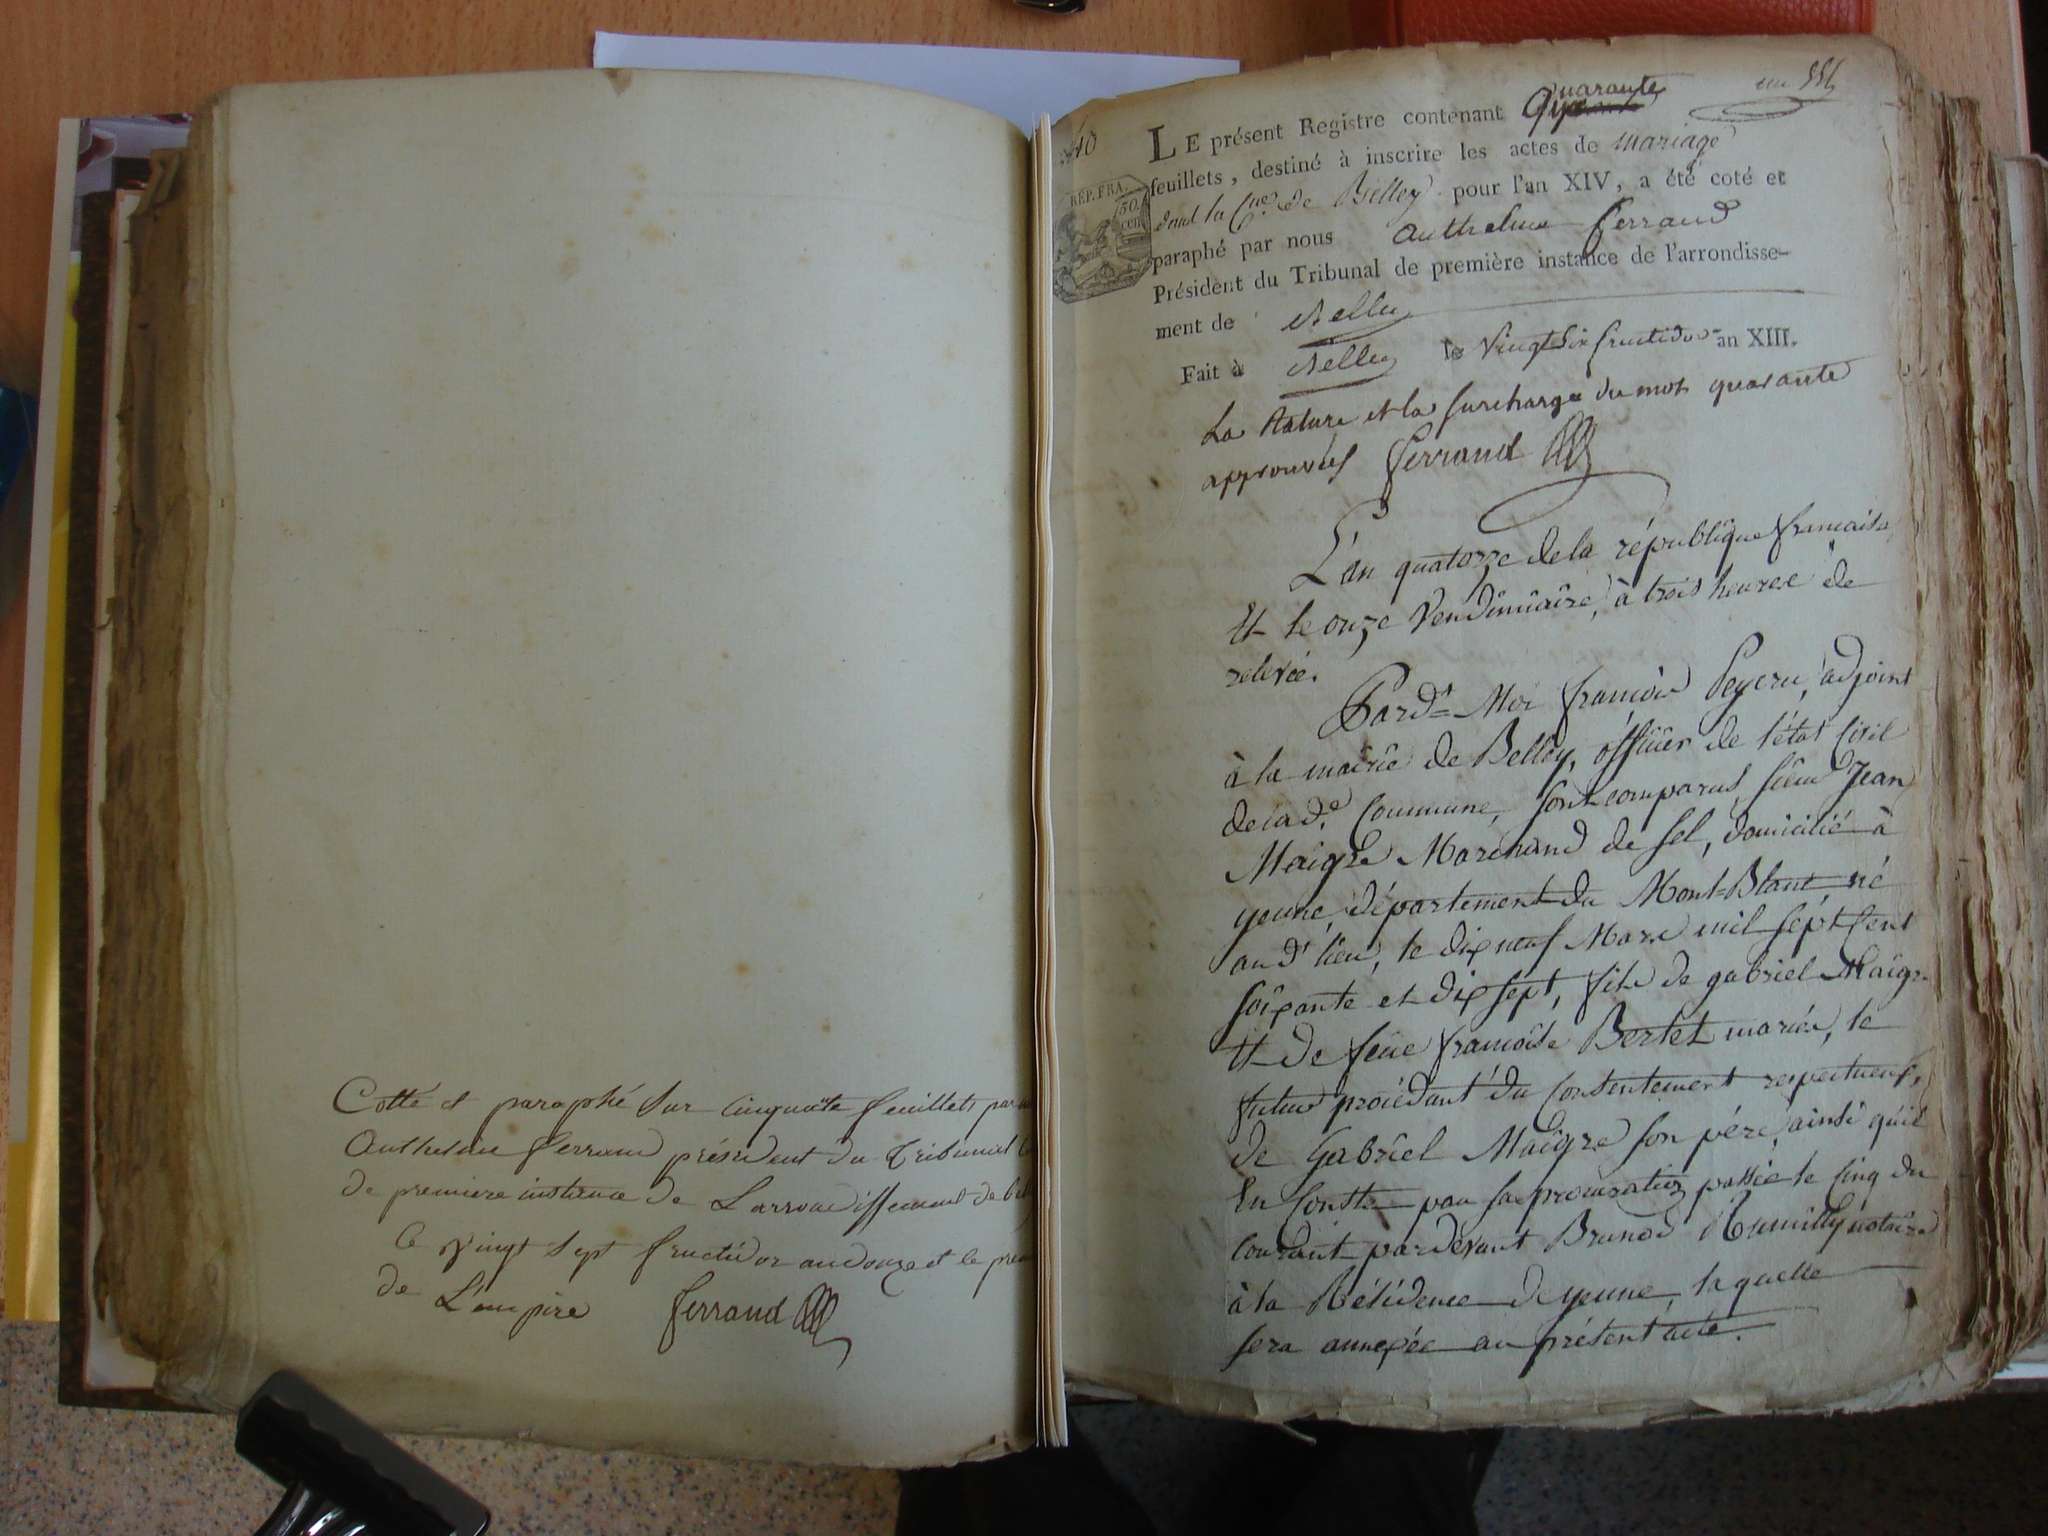 Cotté et paraphé sur cinquante feuillets par
Anthelme Ferrand président du Tribunal
de premiere instance de L'arrondissement de
le vingt sept fructidor an douze et le
de L'empire Ferrand
40
REP. FRA.
50
cen
un
LE présent Registre contenant quarante
feuillets, destiné à inscrire les actes de mariage
dans la Cne de Belley pour l'an XIV, a été coté et
paraphé par nous Anthelme Ferrand
Président du Tribunal de première instance de l'arrondisse-
ment de Belley
Fait à Belley le vingt six fructidor an XIII.
La rature et la surcharge du mot quarante
approuvées Ferrand
L'an quatorze de la république française
Et le onze Vendémiaire, à trois heures de
relevée.
Pard.t Moi françois Peyсru, adjoint
à la mairie de Belley, officier de l'état Civil
de la d.e Commune, sont comparus, sieur Jean
Maigre Marchand de sel, domicilié à
yenne, département du Mont=Blanc, né
au d.t lieu, le dix neuf Mars mil sept Cent
soixante et dix sept, fils de gabriel Maigre
Et de feue françoise Bertet mariés, le
futur procédant du Consentement respectueux,
de Gabriel Maigre son père, ainsi qu'il
En Conste par sa procuration passée le cinq du
courant pardevant Brunod Rumilly notaire
à la Résidence de yenne, laquelle
sera annexée au présent acte.